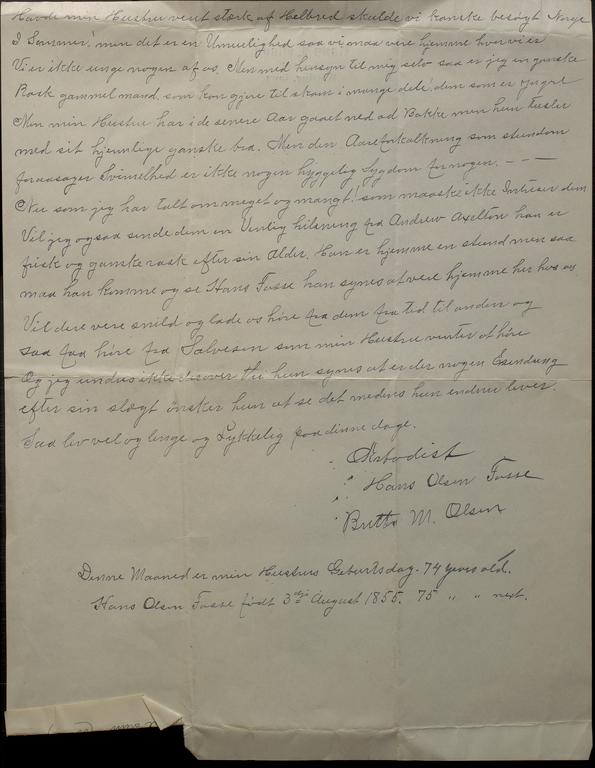 Havde min Hustru veret stærk af Helbred skulde vi kanske besøgt Norge
I Sommer! men det er en Umuelighed saa vi maa vere hjemme hvor vi er
Vi er ikke unge nogen af os. Men med hensyn til mig selv saa er jeg en ganske
Rask gammel mand, som kan gjøre til skam i mange dele! dem som er yngre
Men min Hustru har i de senere Aar gaaet ned ad Bakke men hun tusler
med sit hjemlige ganske bra. Men den Aareforkalkning som stundom
foraasager Svimelhed er ikke nogen hyggelig Sygdom for nogen. - - -
Nu som jeg har talt om meget og mangt! som maaske ikke Intriser dem
Vil jeg ogsaa sende dem en Venlig hilsning fra Andrew Axelton han er
frisk og ganske rask efter sin Alder. Han er hjemme en stund men saa
maa han komme og se Hans Fosse han synes at vere hjemme her hos os.
Vil dere vere snild og lade os høre fra dem fra tid til anden og
saa faa høre fra Salvesen som min Hustru venter at høre
Og jeg undres ikke derover thi hun synes at er der nogen
efter sin slægt ønsker hun at se det medens hun endnu lever.
Saa lev vel og lenge og Lykkelig paa dinne dage.
Hans Olsen Fosse
M. Olsen
Denne Maaned er min Hustrus Geburtsdag. 74 years old.
Hans Olsen Fosse født 3die August 1855. 75 " " next.